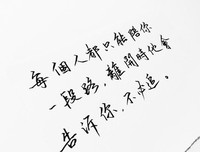 每個人都只能陪你
一段路，離開時他會
告訴你，不必追。